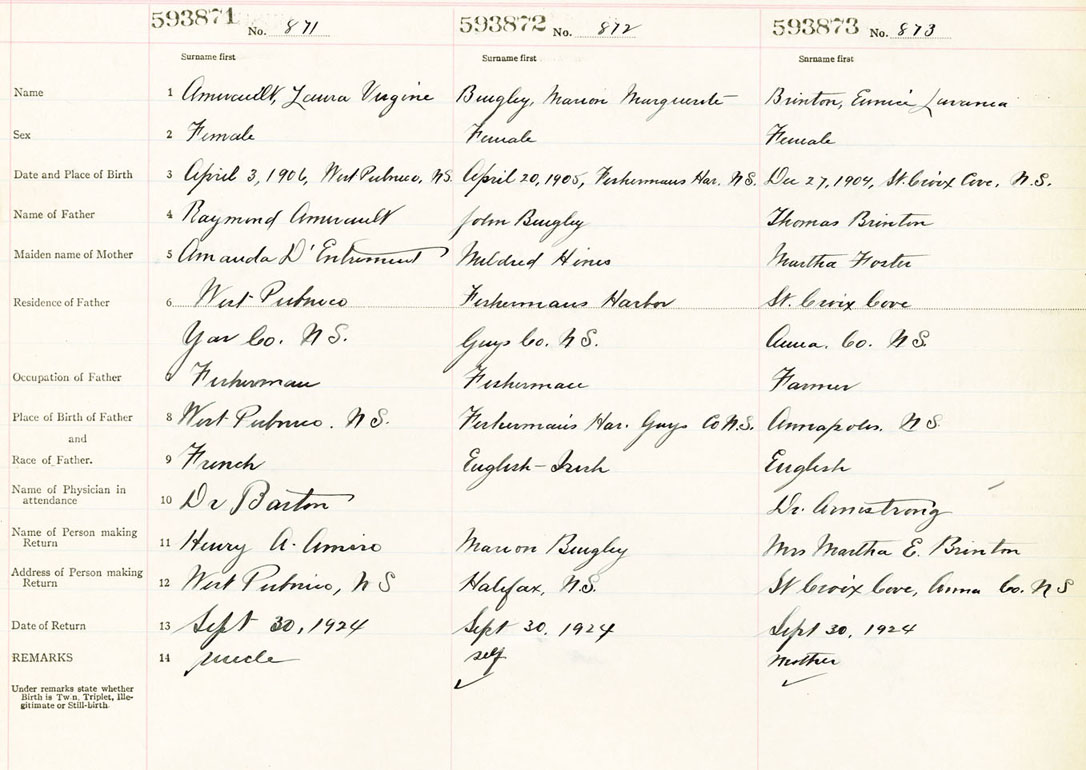 593871 No. 871 593872 No. 872 593873 No. 873
Surname first Surname first Surname first
Name 1 Amirault, Laura Virgine Bingley, Marion Marguerite Brinton, Eunice Lavania
Sex 2 Female Female Female
Date and Place of Birth 3 April 3, 1906, West Pubnico, NS. April 20, 1905, Fishermans Har. N.S. Dec 27, 1904, St. Croix Cove, N.S.
Name of Father 4 Raymond Amirault John Bingley Thomas Brinton
Maiden name of Mother 5 Amanda D'Entremont Mildred Hines Martha Foster
Residence of Father 6 West Pubnico Fishermans Harbor St. Croix Cove
Yar Co. N S. Guys Co. N.S. Anna. Co. N S.
Occupation of Father Fisherman Fisherman Farmer
Place of Birth of Father 8 West Pubnico. N S. Fisherman's Har. Guys Co N.S. Annapolis. N S.
and
Race of Father. 9 French English-Irish English
Name of Physician in
attendance 10 Dr Barton Dr. Armstrong
Name of Person making
Return 11 Henry A. Amiro Marion Bingley Mrs Martha E. Brinton
Address of Person making
Return 12 West Pubnico, N S Halifax, N.S. St Croix Cove, Anna Co. N S
Date of Return 13 Sept 30, 1924 Sept 30, 1924 Sept 30, 1924
REMARKS 14 uncle self mother
Under remarks state whether
Birth is Twn, Triplet, Ille-
gitimate or Still-birth.